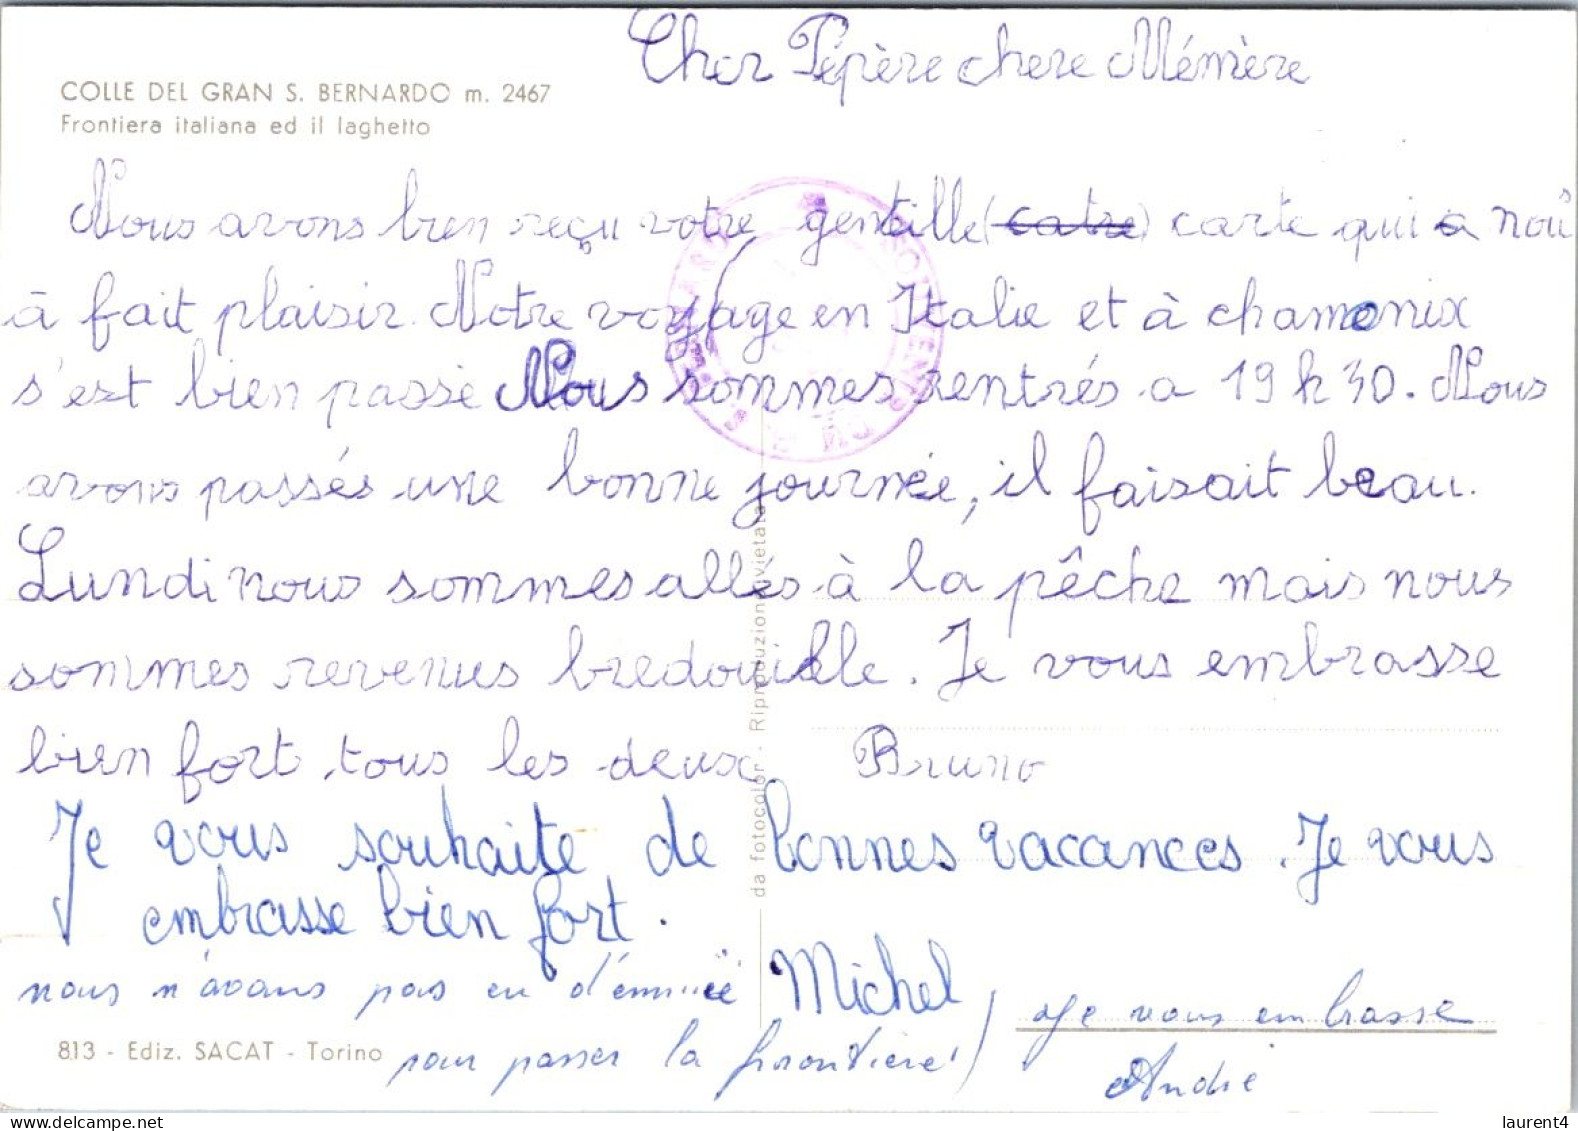 Cher Pépère chere Mémère
COLLE DEL GRAN S. BERNARDO m. 2467
Frontiera italiana ed il laghetto
Nous avons bien reçu votre gentille (catre) carte qui a nou
à fait plaisir. Notre voyage en Italie et à chamonix
s'est bien passé Nous sommes rentrés a 19 h 30. Nous
avons passés une bonne journée, il faisait beau.
Lundi nous sommes allés à la pêche mais nous
sommes revenus bredouille. Je vous embrasse
bien fort, tous les deux Bruno
Je vous souhaite de bonnes vacances. Je vous
embrasse bien fort.
Michel
nous n'avons pas eu d'ennuie
pour passer la frontière!
Je vous embrasse
André
813 - Ediz. SACAT - Torino
da fotocolor - Riproduzion vietata
laurent4